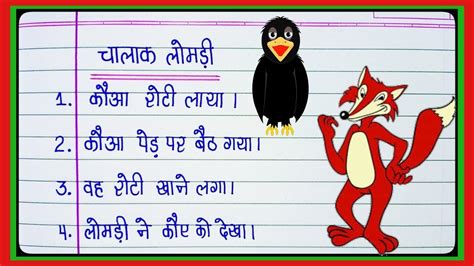 चालाक लोमड़ी
1. कौआ रोटी लाया।
2. कौआ पेड़ पर बैठ गया।
3. वह रोटी खाने लगा।
4. लोमड़ी ने कौए को देखा।